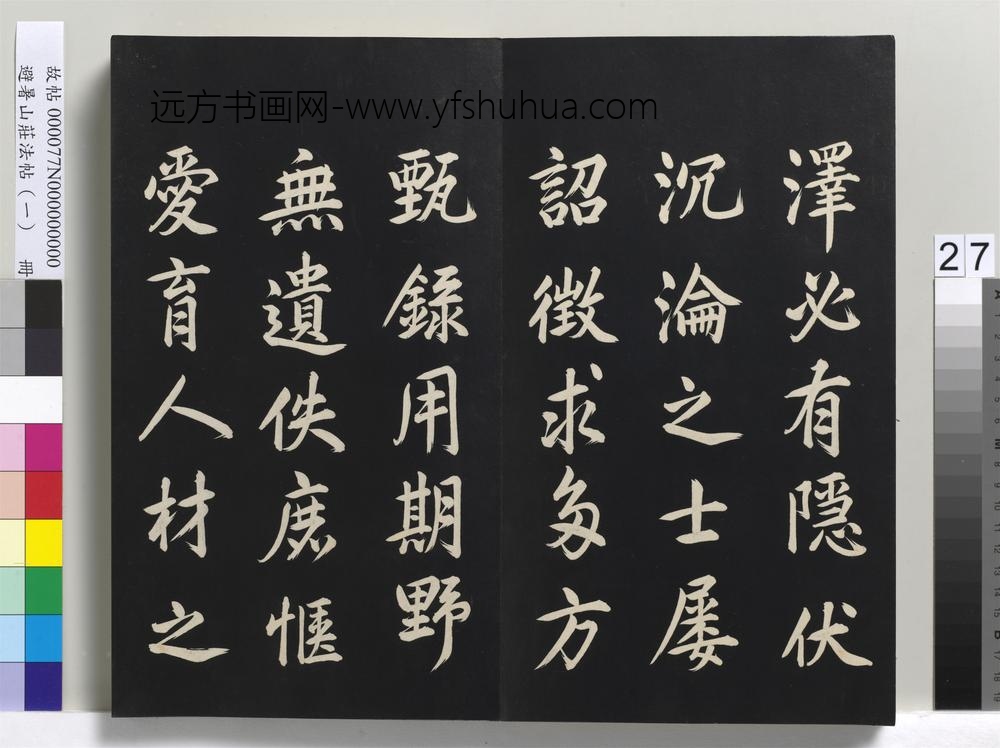 远方书画网-www.yfshuhua.com
澤必有隱伏
沉淪之士屡
詔徵求多方
甄錄用期野
無遺佚庶愜
愛育人材之
故帖 000077N000000000
避暑山莊法帖（一） 冊
27